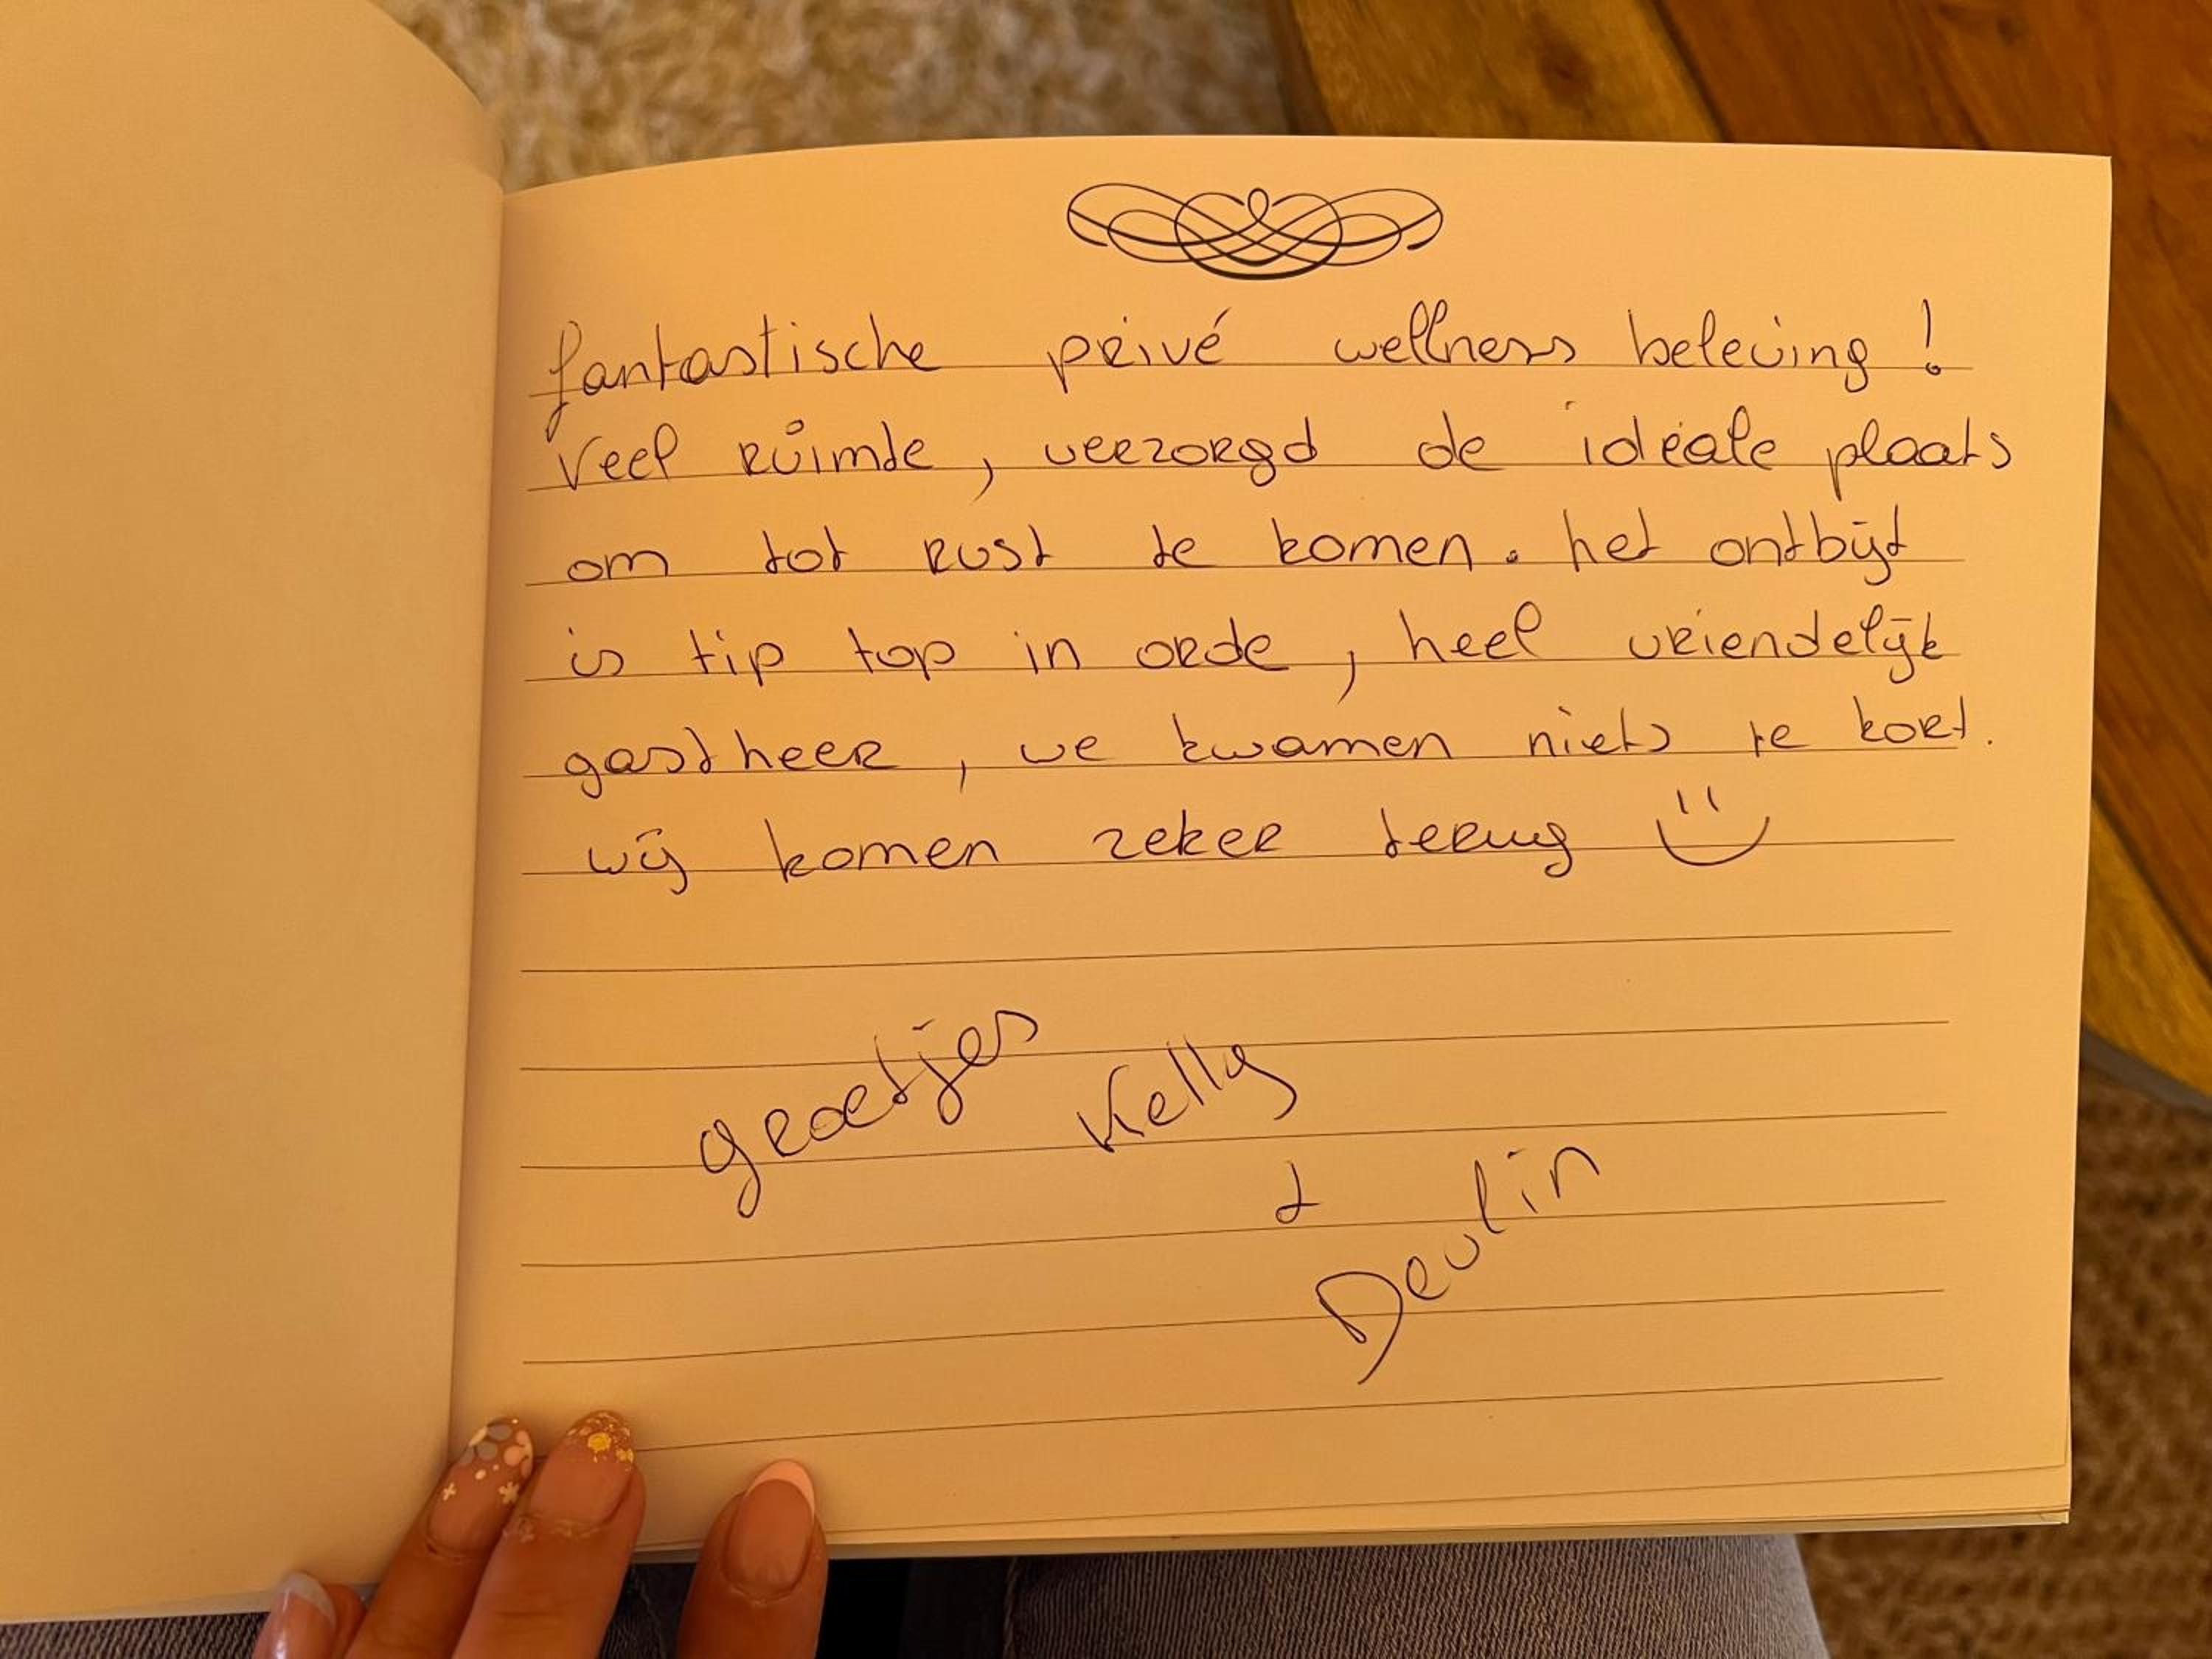 fantastische privé wellness beleving!
Veel ruimte, verzorgd de ideale plaats
om tot rust te komen. het ontbijt
is tip top in orde, heel vriendelijk
gastheer, we kwamen niets te kort.
wij komen zeker terug
groetjes
Kelly
&
Devlin